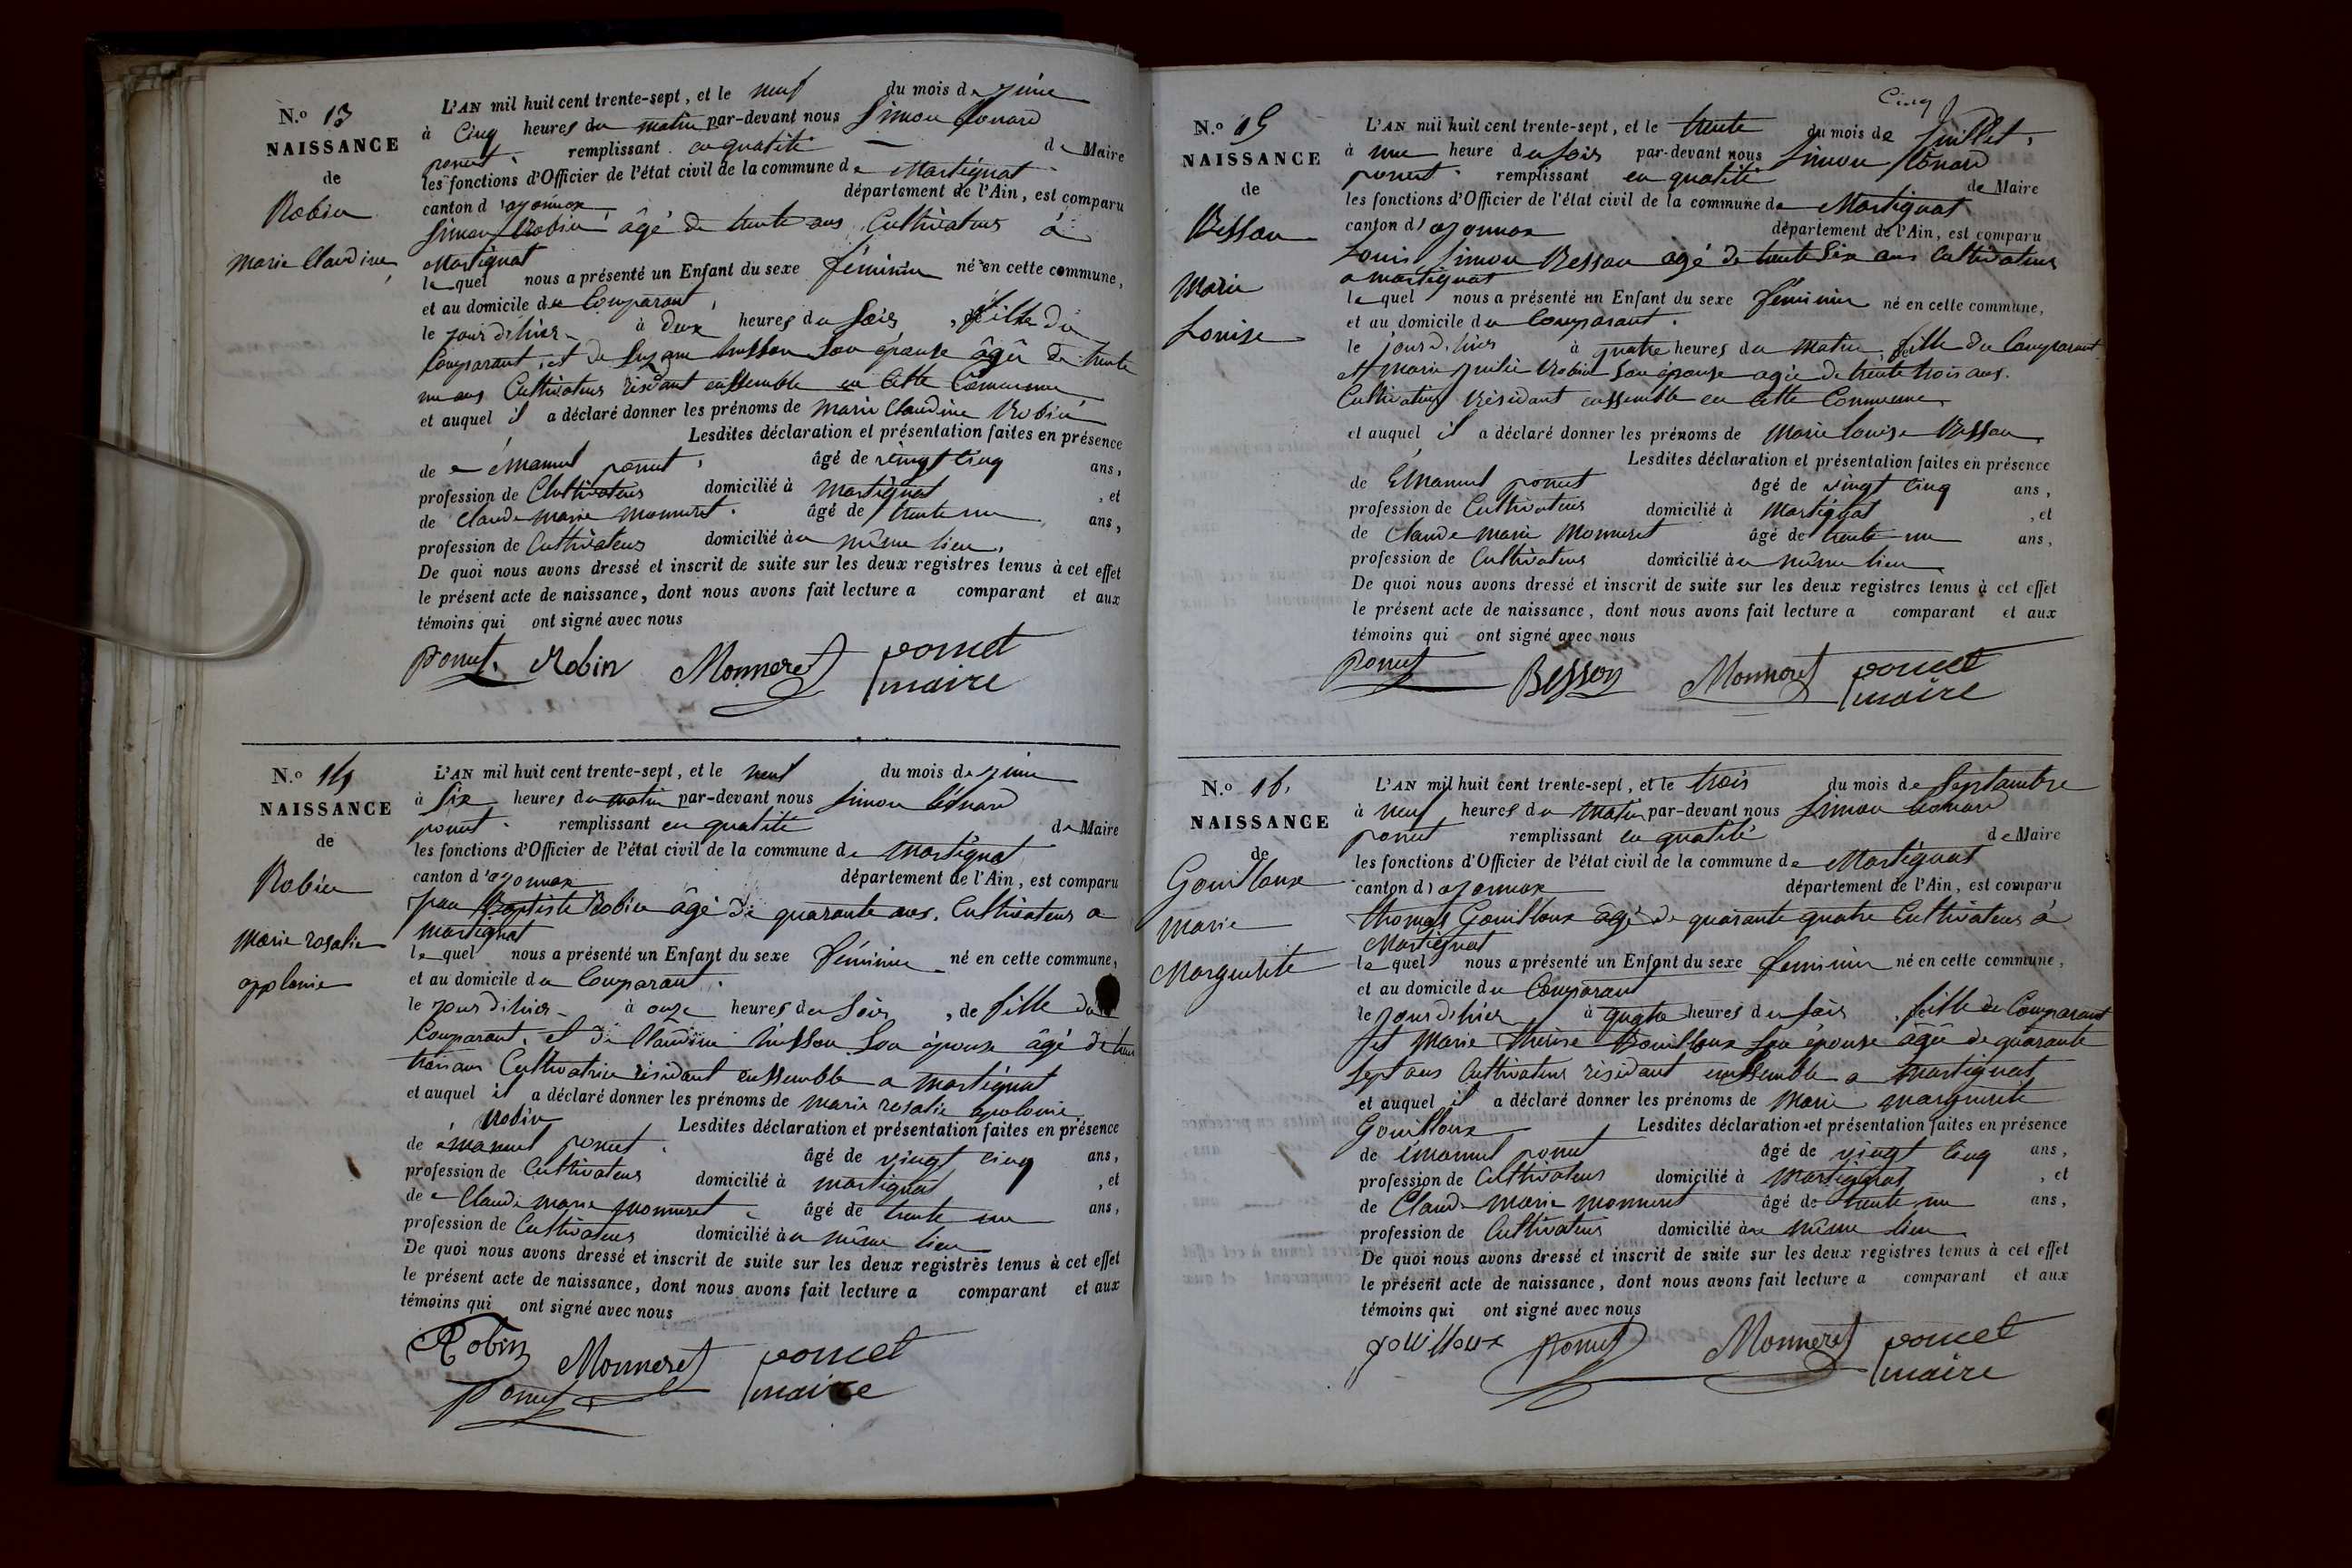 N.o 13
NAISSANCE
de
Robin
Marie Claudine
L'AN mil huit cent trente-sept, et le neuf du mois de juin
à Cinq heures du matin par-devant nous Simon Léonard
poncet remplissant en qualité de Maire
les fonctions d'Officier de l'état civil de la commune de Martignat
canton d'oyonnax département de l'Ain, est comparu
Simon Robin âgé de trente ans Cultivateur à
Martignat
lequel nous a présenté un Enfant du sexe féminin né en cette commune,
et au domicile du Comparant
le jour d'hier à deux heures du soir, fille du
Comparant et de Suzanne husson son épouse âgée de trente
un ans Cultivateurs résidant ensemble en cette Commune
et auquel il a déclaré donner les prénoms de marie Claudine Robin
Lesdites déclaration et présentation faites en présence
de émanuel poncet âgé de vingt cinq ans,
profession de Cultivateur domicilié à Martignat, et
de Claude marie monneret âgé de trente un ans,
profession de Cultivateur domicilié au même lieu.
De quoi nous avons dressé et inscrit de suite sur les deux registres tenus à cet effet
le présent acte de naissance, dont nous avons fait lecture a comparant et aux
témoins qui ont signé avec nous
poncet Robin Monneret poncet
maire
N.o 14
NAISSANCE
de
Robin
Marie rosalie
applonie
L'AN mil huit cent trente-sept, et le neuf du mois de juin
à Six heures du matin par-devant nous Simon Léonard
poncet remplissant en qualité de Maire
les fonctions d'Officier de l'état civil de la commune de Martignat
canton d'oyonnax département de l'Ain, est comparu
jean Baptiste Robin âgé de quarante ans, Cultivateur a
martignat
lequel nous a présenté un Enfant du sexe féminin né en cette commune,
et au domicile du Comparant.
le jour d'hier à onze heures du soir, de fille du
Comparant, et de Claudine husson son épouse âgé de trente
trois ans Cultivatrice résidant ensemble a martignat
et auquel il a déclaré donner les prénoms de marie rosalie apolonie
Robin Lesdites déclaration et présentation faites en présence
de émanuel poncet âgé de vingt cinq ans,
profession de Cultivateur domicilié à martignat, et
de Claude marie monneret âgé de trente un ans,
profession de Cultivateur domicilié au même lieu
De quoi nous avons dressé et inscrit de suite sur les deux registres tenus à cet effet
le présent acte de naissance, dont nous avons fait lecture a comparant et aux
témoins qui ont signé avec nous
Robin Monneret poncet
poncet maire
Cinq
N.o 15
NAISSANCE
de
Besson
Marie
Louise
L'AN mil huit cent trente-sept, et le trente du mois de juillet,
à une heure du soir par-devant nous Simon Léonard
poncet remplissant en qualité de Maire
les fonctions d'Officier de l'état civil de la commune de Martignat
canton d'oyonnax département de l'Ain, est comparu
Louis Simon Besson agé de trente six ans Cultivateur
a martignat
lequel nous a présenté un Enfant du sexe féminin né en cette commune,
et au domicile du Comparant.
le jour d'hier à quatre heures du matin, fille du Comparant
et marie julie Robin son épouse agée de trente trois ans.
Cultivateurs résidant ensemble en cette Commune
et auquel il a déclaré donner les prénoms de Marie Louise Besson
Lesdites déclaration et présentation faites en présence
de Émanuel poncet âgé de vingt cinq ans,
profession de Cultivateur domicilié à Martignat, et
de Claude marie Monneret âgé de trente un ans,
profession de Cultivateur domicilié au même lieu
De quoi nous avons dressé et inscrit de suite sur les deux registres tenus à cet effet
le présent acte de naissance, dont nous avons fait lecture a comparant et aux
témoins qui ont signé avec nous
poncet Besson Monneret poncet
maire
N.o 16.
NAISSANCE
de
Gouilloux
Marie
Marguerite
L'AN mil huit cent trente-sept, et le trois du mois de Septambre
à neuf heures du matin par-devant nous Simon Léonard
poncet remplissant en qualité de Maire
les fonctions d'Officier de l'état civil de la commune de Martignat
canton d'oyonnax département de l'Ain, est comparu
thomas Gouilloux âgé de quarante quatre Cultivateur à
Martignat
lequel nous a présenté un Enfant du sexe feminin né en cette commune,
et au domicile du Comparant
le jour d'hier à quatre heures du soir, fille du Comparant
et Marie thérèse Bouilloux son épouse âgée de quarante
sept ans Cultivateurs résidant ensemble a Martignat
et auquel il a déclaré donner les prénoms de Marie marguerite
Gouilloux Lesdites déclaration et présentation faites en présence
de émanuel poncet âgé de vingt cinq ans,
profession de Cultivateur domicilié à martignat, et
de Claude marie monneret âgé de trente un ans,
profession de Cultivateur domicilié au même lieu
De quoi nous avons dressé et inscrit de suite sur les deux registres tenus à cet effet
le présent acte de naissance, dont nous avons fait lecture a comparant et aux
témoins qui ont signé avec nous
gouilloux poncet Monneret poncet
maire